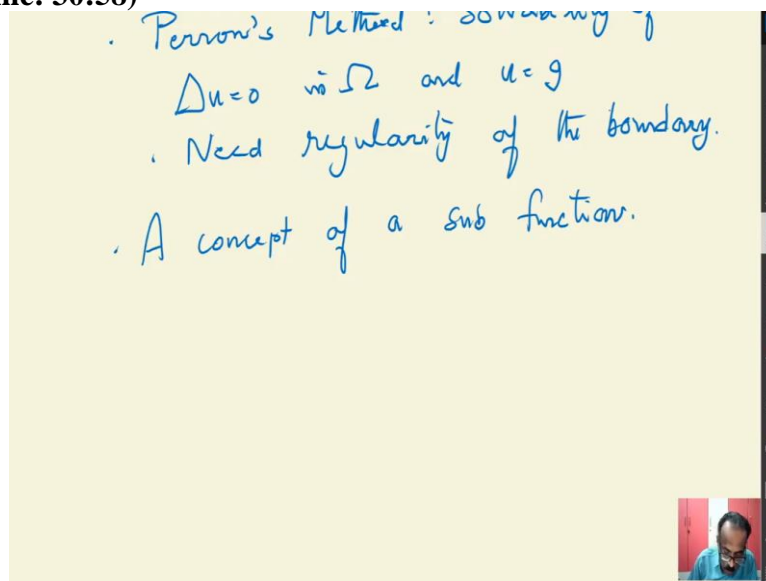 · Perron's Method : Solvability of
Δu=0 in Ω and u=g
· Need regularity of the boundary.
· A concept of a sub function.